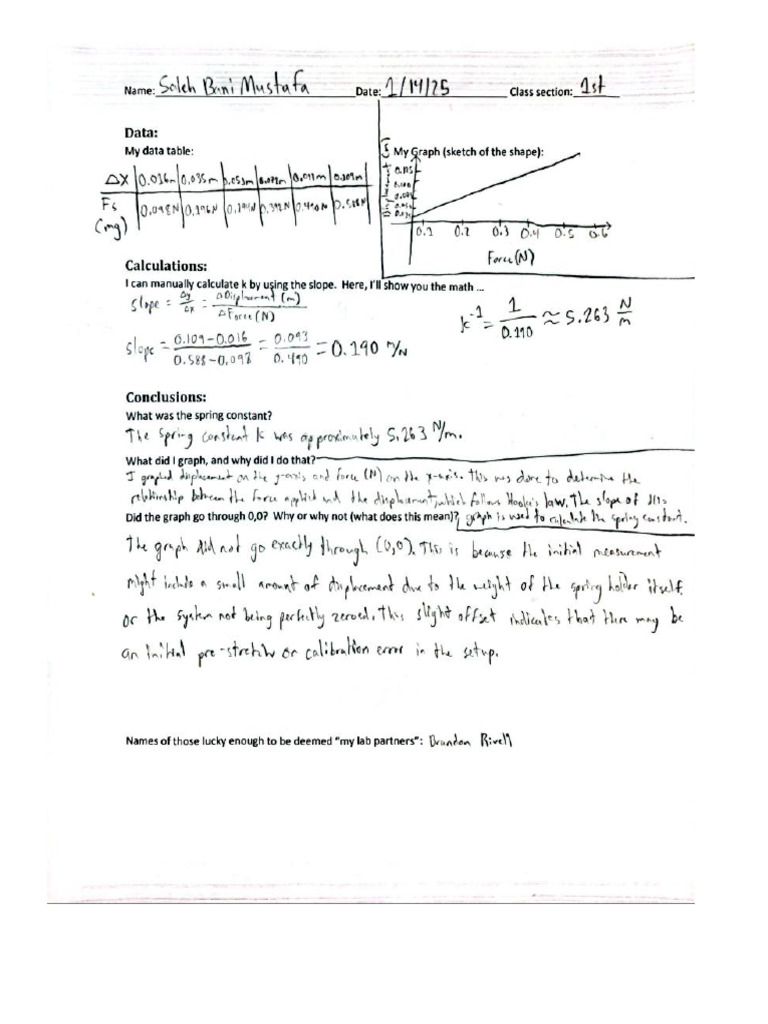 Name: Saleh Bani Mustafa Date: 1/14/25 Class section: 1st
Data:
My data table:
ΔX 0.016m 0.035m 0.053m 0.072m 0.091m 0.109m
Fs (mg) 0.098N 0.196N 0.294N 0.392N 0.490N 0.588N
My Graph (sketch of the shape):
Displacement (m)
0.1 0.2 0.3 0.4 0.5 0.6
Force (N)
Calculations:
I can manually calculate k by using the slope. Here, I'll show you the math ...
slope = Δy/Δx = Δ Displacement (m)/Δ Force (N)
k⁻¹ = 1/0.190 ≈ 5.263 N/m
slope = 0.109-0.016/0.588-0.098 = 0.093/0.490 = 0.190 m/N
Conclusions:
What was the spring constant?
The spring constant k was approximately 5.263 N/m.
What did I graph, and why did I do that?
I graphed displacement on the y-axis and force (N) on the x-axis. This was done to determine the
relationship between the force applied and the displacement, which follows Hooke's law. The slope of this
Did the graph go through 0,0? Why or why not (what does this mean)? graph is used to calculate the spring constant.
The graph did not go exactly through (0,0). This is because the initial measurement
might include a small amount of displacement due to the weight of the spring holder itself.
or the system not being perfectly zeroed. This slight offset indicates that there may be
an initial pre-stretch or calibration error in the setup.
Names of those lucky enough to be deemed "my lab partners": Brandon Rivell